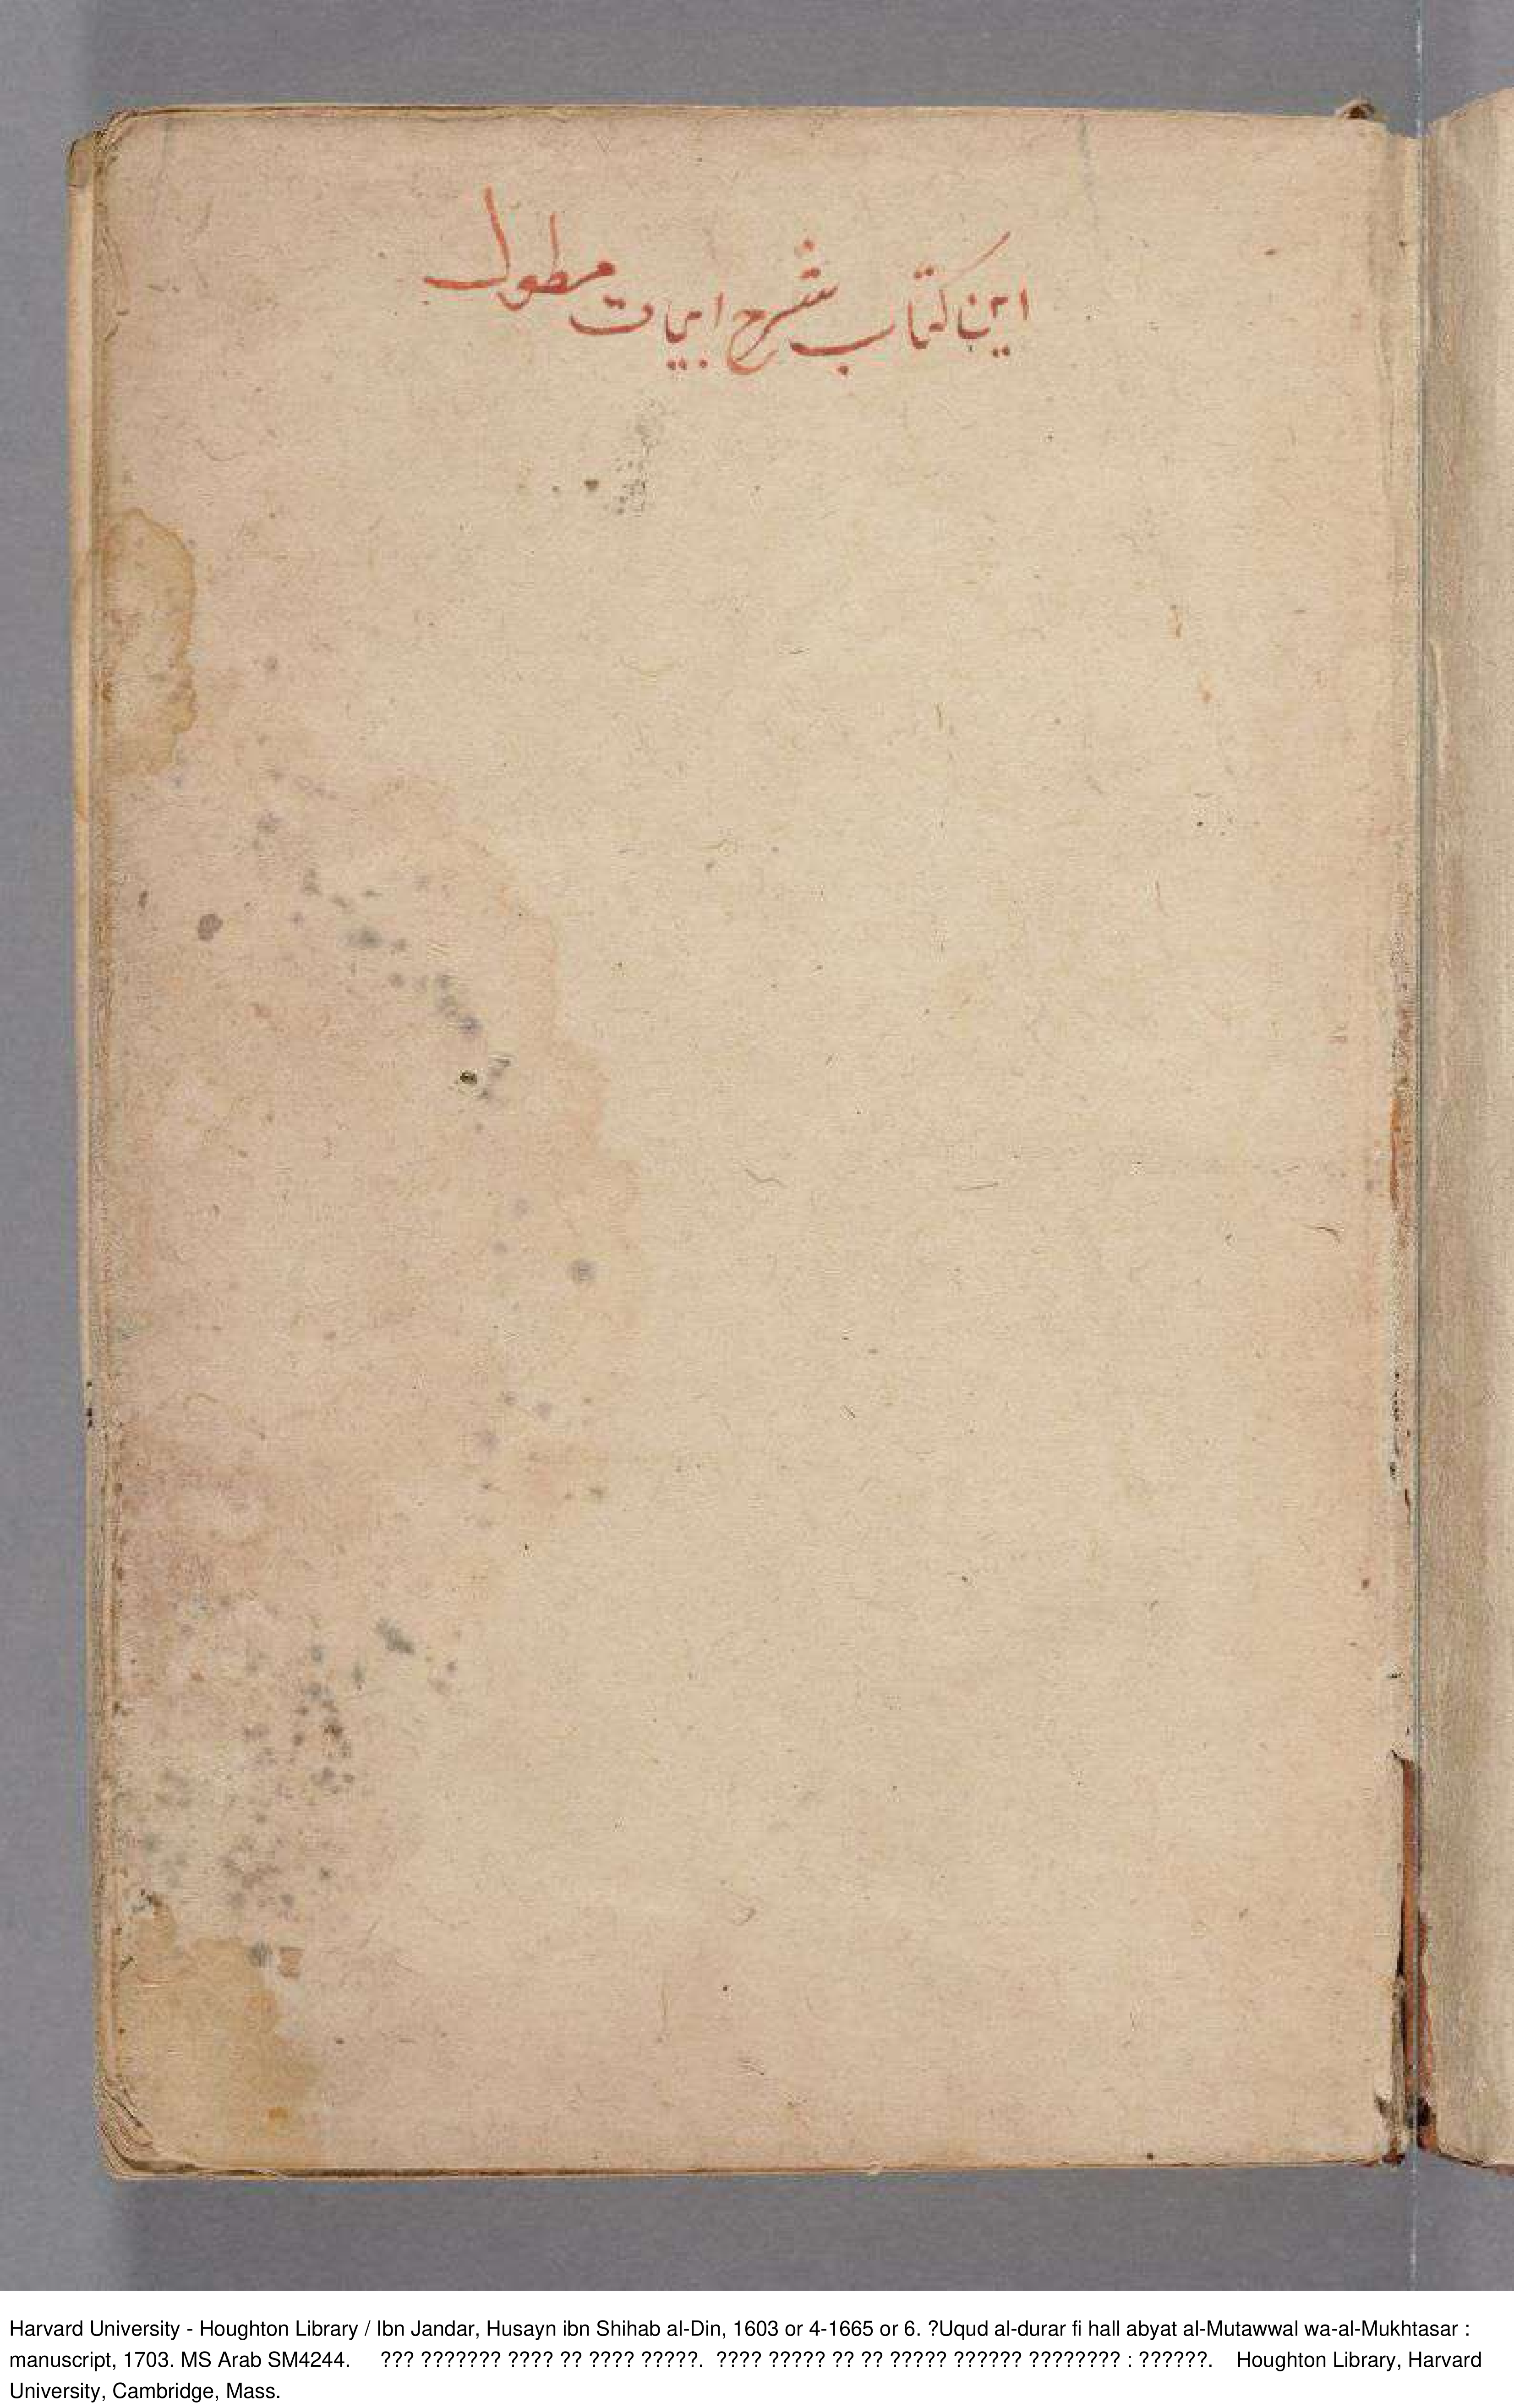 این کتاب شرح ابیات مطول
Harvard University - Houghton Library / Ibn Jandar, Husayn ibn Shihab al-Din, 1603 or 4-1665 or 6. ?Uqud al-durar fi hall abyat al-Mutawwal wa-al-Mukhtasar :
manuscript, 1703. MS Arab SM4244. ??? ??????? ???? ?? ???? ?????. ???? ????? ?? ?? ????? ?????? ???????? : ??????. Houghton Library, Harvard
University, Cambridge, Mass.